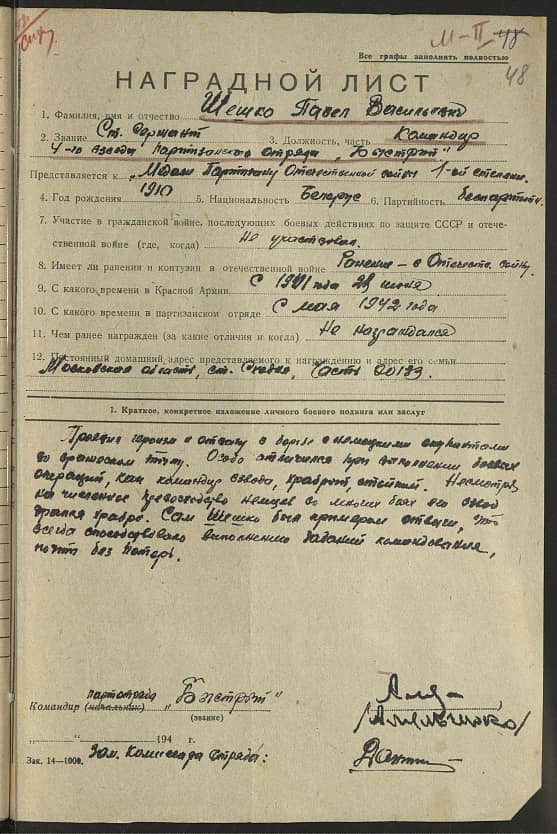 М-II 48
Все графы заполнять полностью
48
НАГРАДНОЙ ЛИСТ
1. Фамилия, имя и отчество Шешко Павел Васильевич
2. Звание Ст. Сержант 3. Должность, часть Командир
4-го взвода Партизанского отряда „Быстрый"
Представляется к „Медали Партизану Отечественной войны 1-ой степени.
4. Год рождения 1910 5. Национальность Беларус 6. Партийность беспартийн.
7. Участие в гражданской войне, последующих боевых действиях по защите СССР и отече-
ственной войне (где, когда) Не участвовал
8. Имеет ли ранения и контузии в отечественной войне Ранение - в Отечеств. войну.
9. С какого времени в Красной Армии С 1941 года 28 июня
10. С какого времени в партизанском отряде С мая 1942 года
11. Чем ранее награжден (за какие отличия и когда) Не награждался
12. Постоянный домашний адрес представляемого к награждению и адрес его семьи
Московская область, ст. Часть 20183.
1. Краткое, конкретное изложение личного боевого подвига или заслуг
Проявил героизм и отвагу в борьбе с немецкими окупантами
во вражеском тылу. Особо отличился при выполнении боевых
операций, как командир взвода, храбрый, стойкий. Несмотря
на численное превосходство немцев во многих боях его взвод
дрался храбро. Сам Шешко был примером отваги, что
всегда способствовало выполнению заданий командования,
почти без потерь.
партотряда
Командир (начальник) „Быстрый"
(звание)
/Амельченко/
„ " 194 г.
Зам. Комиссара отряда:
Зак. 14—1000.